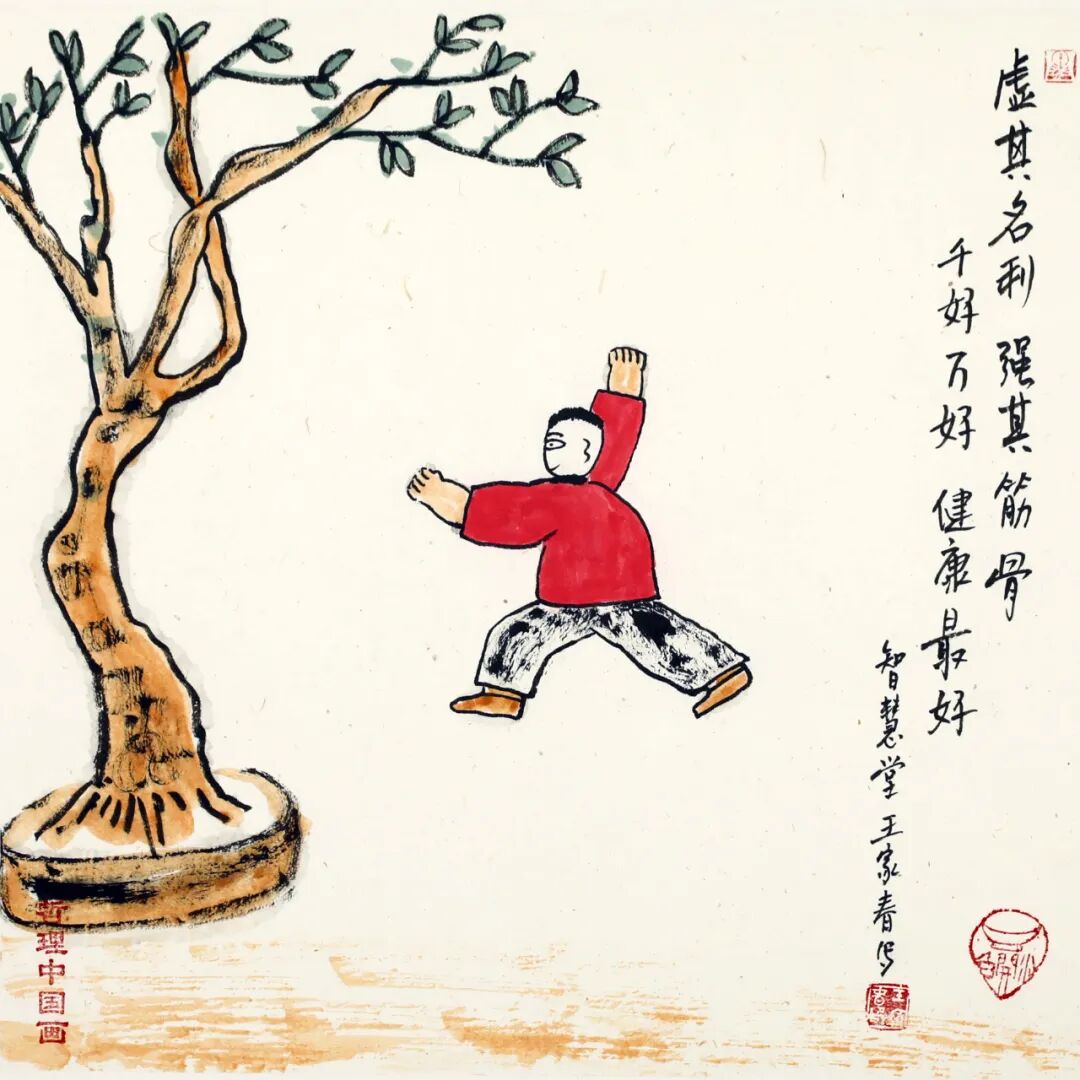 虚其名利 强其筋骨
千好万好 健康最好
智慧堂王家春写
哲理中国画